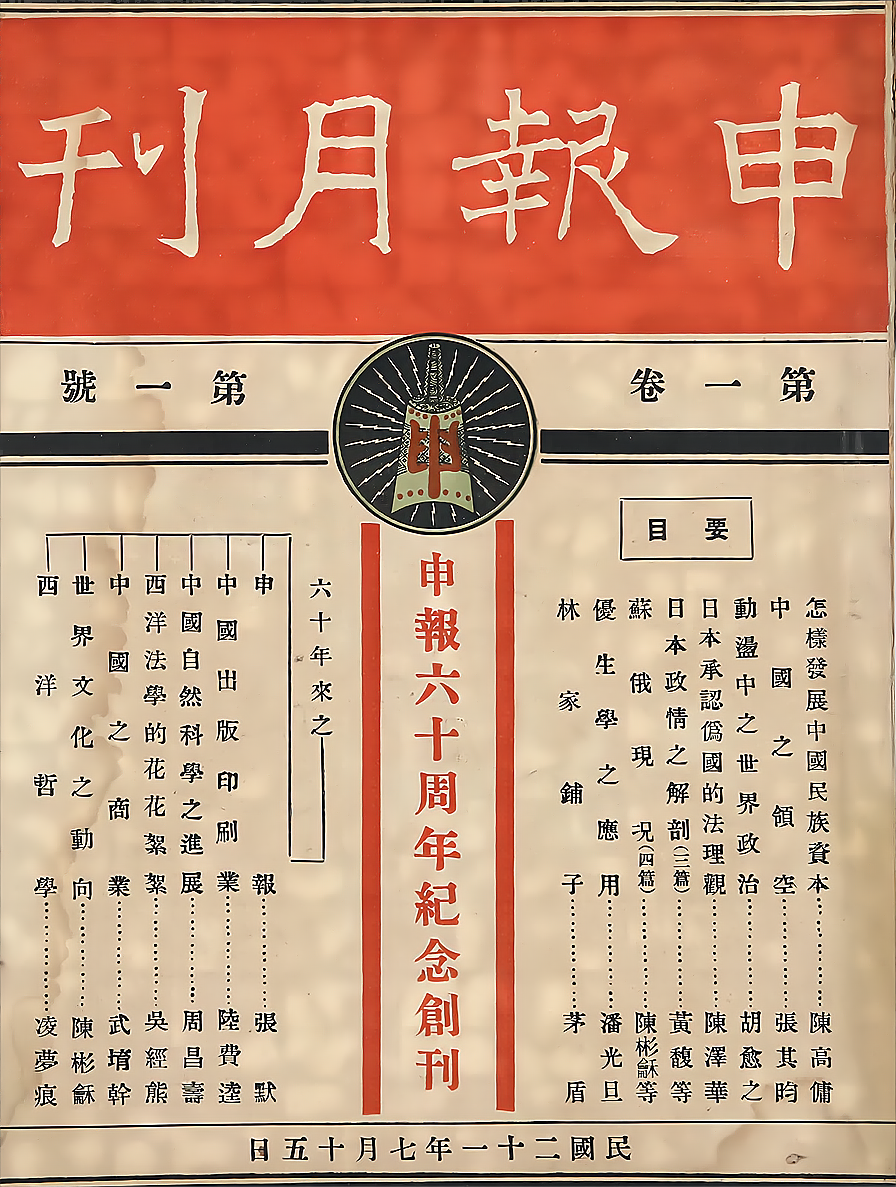 申報月刊
第一卷
第一號
申
要目
怎樣發展中國民族資本………陳高傭
中國之領空………張其昀
動盪中之世界政治………胡愈之
日本承認僞國的法理觀………陳澤華
日本政情之解剖(三篇)………黃馥等
蘇俄現况(四篇)………陳彬龢等
優生學之應用………潘光旦
林家鋪子………茅盾
申報六十周年紀念創刊
六十年來之
申報………張默
中國出版印刷業………陸費逵
中國自然科學之進展………周昌壽
西洋法學的花花絮絮………吳經熊
中國之商業………武堉幹
世界文化之動向………陳彬龢
西洋哲學………凌夢痕
民國二十一年七月十五日